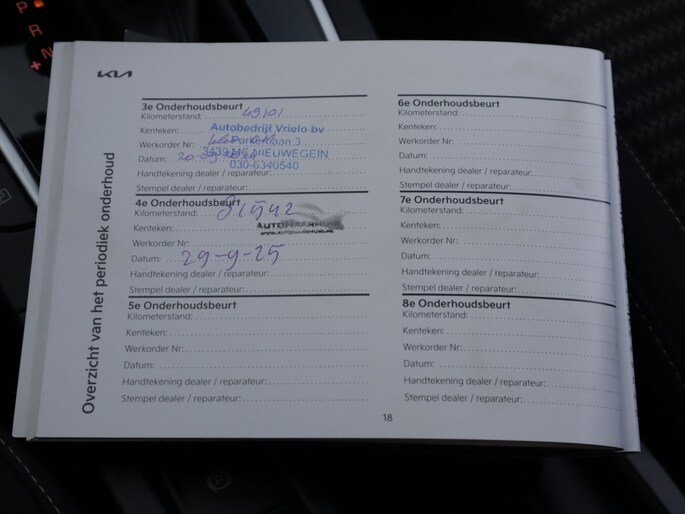 P
R
N
KIA
Overzicht van het periodiek onderhoud
3e Onderhoudsbeurt
Kilometerstand: 49101
Kenteken:
Autobedrijf Vrielo bv
Werkorder Nr:
Parkerlaan 3
Datum:
3439 MG NIEUWEGEIN
030-6340540
Handtekening dealer / reparateur:
Stempel dealer / reparateur:
4e Onderhoudsbeurt
Kilometerstand: 81542
Kenteken:
Werkorder Nr:
Datum: 29-9-25
Handtekening dealer / reparateur:
Stempel dealer / reparateur:
5e Onderhoudsbeurt
Kilometerstand:
Kenteken:
Werkorder Nr:
Datum:
Handtekening dealer / reparateur:
Stempel dealer / reparateur:
6e Onderhoudsbeurt
Kilometerstand:
Kenteken:
Werkorder Nr:
Datum:
Handtekening dealer / reparateur:
Stempel dealer / reparateur:
7e Onderhoudsbeurt
Kilometerstand:
Kenteken:
Werkorder Nr:
Datum:
Handtekening dealer / reparateur:
Stempel dealer / reparateur:
8e Onderhoudsbeurt
Kilometerstand:
Kenteken:
Werkorder Nr:
Datum:
Handtekening dealer / reparateur:
Stempel dealer / reparateur:
18